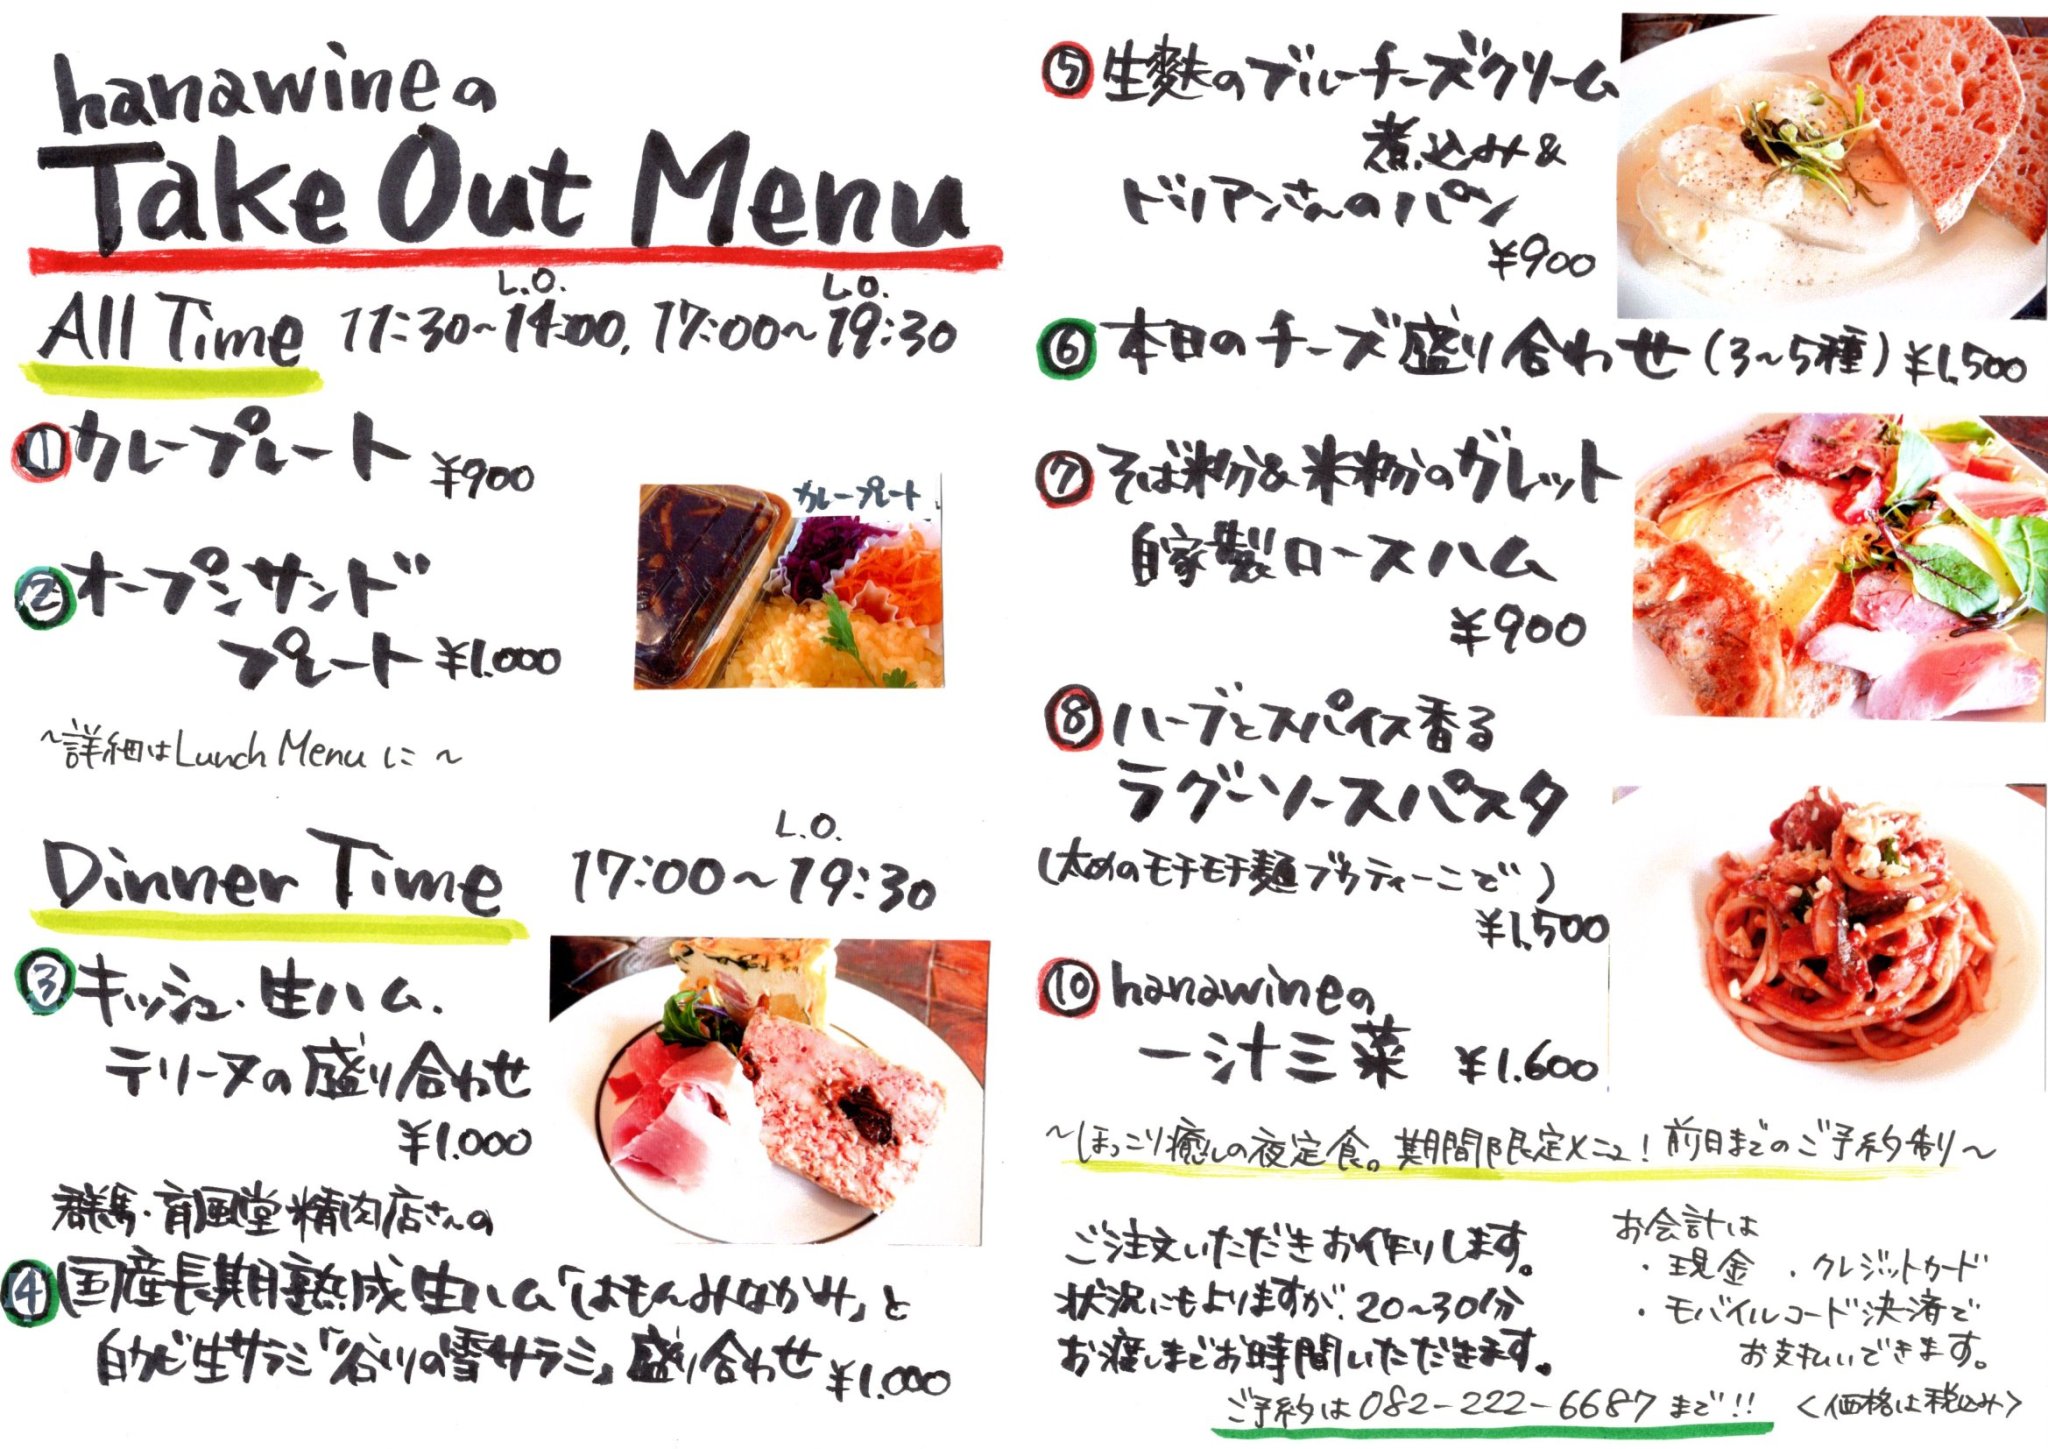 hanawineの
Take Out Menu
All Time 11:30~14:00, 17:00~19:30
L.O. L.O.
① カレープレート ¥900
カレープレート
② オープンサンド
プレート ¥1.000
~詳細はLunch Menuに~
Dinner Time 17:00~19:30
L.O.
③ キッシュ・生ハム・
テリーヌの盛り合わせ
¥1.000
群馬・育風堂精肉店さんの
④ 国産長期熟成生ハム「はもんみなかみ」と
白カビ生サラミ「谷川の雪サラミ」盛り合わせ ¥1.000
⑤ 生麩のブルーチーズクリーム
煮込み&
ドリアンさんのパン
¥900
⑥ 本日のチーズ盛り合わせ(3~5種) ¥1.500
⑦ そば粉&米粉のガレット
自家製ロースハム
¥900
⑧ ハーブとスパイス香る
ラグーソースパスタ
(太めのモチモチ麺ブカティーニで)
¥1,500
⑩ hanawineの
一汁三菜 ¥1.600
~ほっこり癒しの夜定食。期間限定メニュー!前日までのご予約制~
ご注文いただきお作りします。
状況にもよりますが、20~30分
お渡しまでお時間いただきます。
お会計は
・現金 ・クレジットカード
・モバイルコード決済で
お支払いできます。
ご予約は082-222-6687まで!! <価格は税込み>